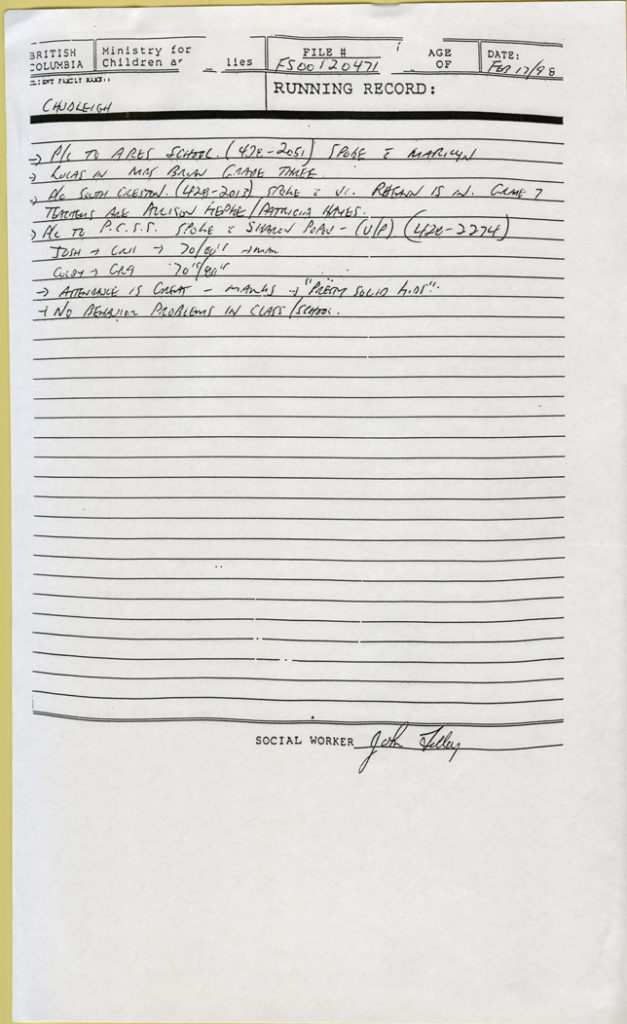 BRITISH COLUMBIA
Ministry for Children lies
FILE # FS00120471
AGE OF
DATE: FEB 17/98
CHUDLEIGH
RUNNING RECORD:
→ P/C TO ARES SCHOOL. (428-2051) SPOKE c̄ MARILYN
→ LUCAS IN MRS BRUN GRADE THREE.
→ P/C SOUTH CRESTON. (428-2013) SPOKE c̄ IS IN. GRADE 7
TEACHERS ARE ALLISON / PATRICIA HAYES.
→ P/C TO P.C.S.S. SPOKE c̄ SHARON - (V/P) (428-2274)
JOSH → GR 11 → 70/80's →
→ GR 9 70's/80's
→ ATTENDANCE IS GREAT - MARKS → "PRETTY SOLID KIDS".
→ NO BEHAVIOR PROBLEMS IN CLASS/SCHOOL.
SOCIAL WORKER John